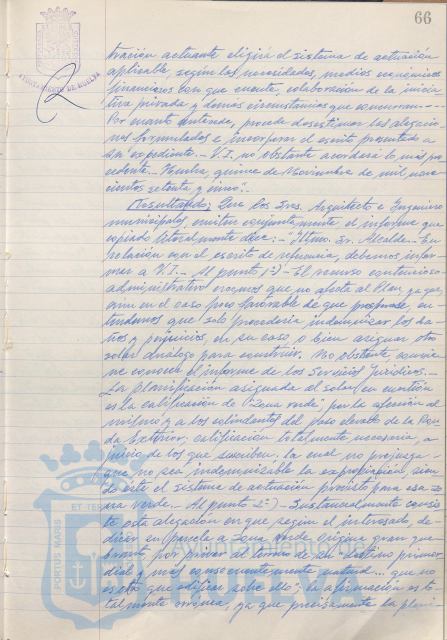 66
AYUNTAMIENTO DE HUELVA
tración actuante eligirá el sistema de actuación
aplicable, según las necesidades, medios económicos
financieros con que cuente, colaboración de la inicia
tiva privada y demás circunstancias que concurran.-
Por cuanto antecede, procede desestimar las alegacio
nes formuladas e incorporar el escrito presentado a
su expediente.- V.I. no obstante acordará lo más pro
cedente.- Huelva, quince de Noviembre de mil nove
cientos setenta y uno".-
Resultando; Que los Sres. Arquitecto e Ingeniero
municipales, emiten conjuntamente, el informe que
copiado literalmente dice:- "Iltmo. Sr. Alcalde.- En
relación con el escrito de referencia, debemos infor
mar a V.I.- Al punto 1º)- El recurso contencioso
administrativo creemos que no afecta al Plan, ya que,
aún en el caso poco favorable de que prospere, en-
tendemos que solo procedería indemnizar los da-
ños y perjuicios, en su caso, o bien asignar otro
solar análogo para construir. No obstante convie
ne conocer el informe de los Servicios Jurídicos.-
La planificación asignada al solar en cuestión
es la calificación de "Zona verde", por la afección al
mismo y a los colindantes del paso elevado de la Ron
da Exterior; calificación totalmente necesaria, a
juicio de los que suscriben, la cual no prejuzga
que no sea indemnizable la expropiación, sien
do éste el sistema de actuación previsto para esa zo
na verde.- Al punto 2º)- Sustancialmente consis
te esta alegación en que, según el interesado, de
dicar su parcela a zona verde origina gran que
branto, por privar al terreno de su destino primor
dial y mas consecuentemente natural... que no
es otro que edificar sobre ello"; la afirmación es to
talmente errónea, ya que precisamente la plani-
PORTUS MARIS
ET TERRAE
HUELVA